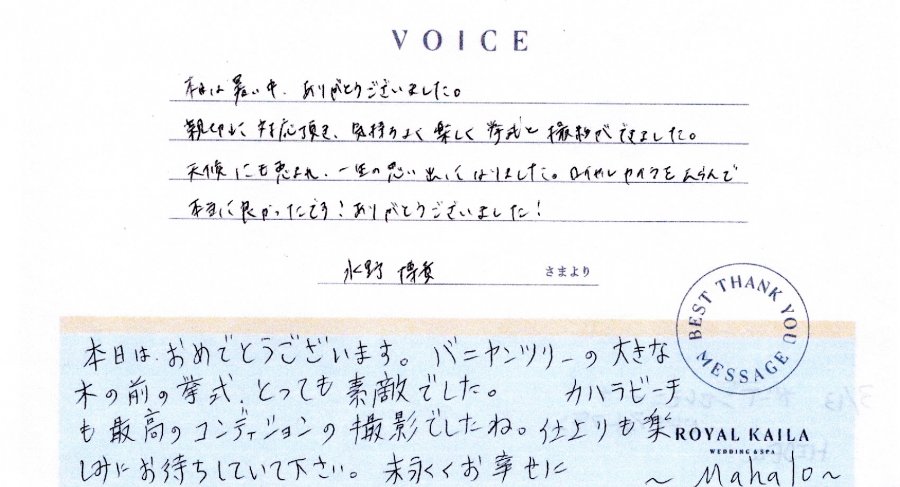 VOICE
本日は暑い中、ありがとうございました。
親切に対応頂き、気持ちよく楽しく挙式と撮影ができました。
天候にも恵まれ、一生の思い出になりました。ロイヤルカイラをえらんで
本当に良かったです！ありがとうございました！
水野 さまより
BEST THANK YOU MESSAGE
本日は、おめでとうございます。バニヤンツリーの大きな
木の前の挙式、とっても素敵でした。 カハラビーチ
も最高のコンディションの撮影でしたね。仕上りも楽
しみにお待ちしていて下さい。末永くお幸せに
ROYAL KAILA
WEDDING & SPA
～Mahalo～